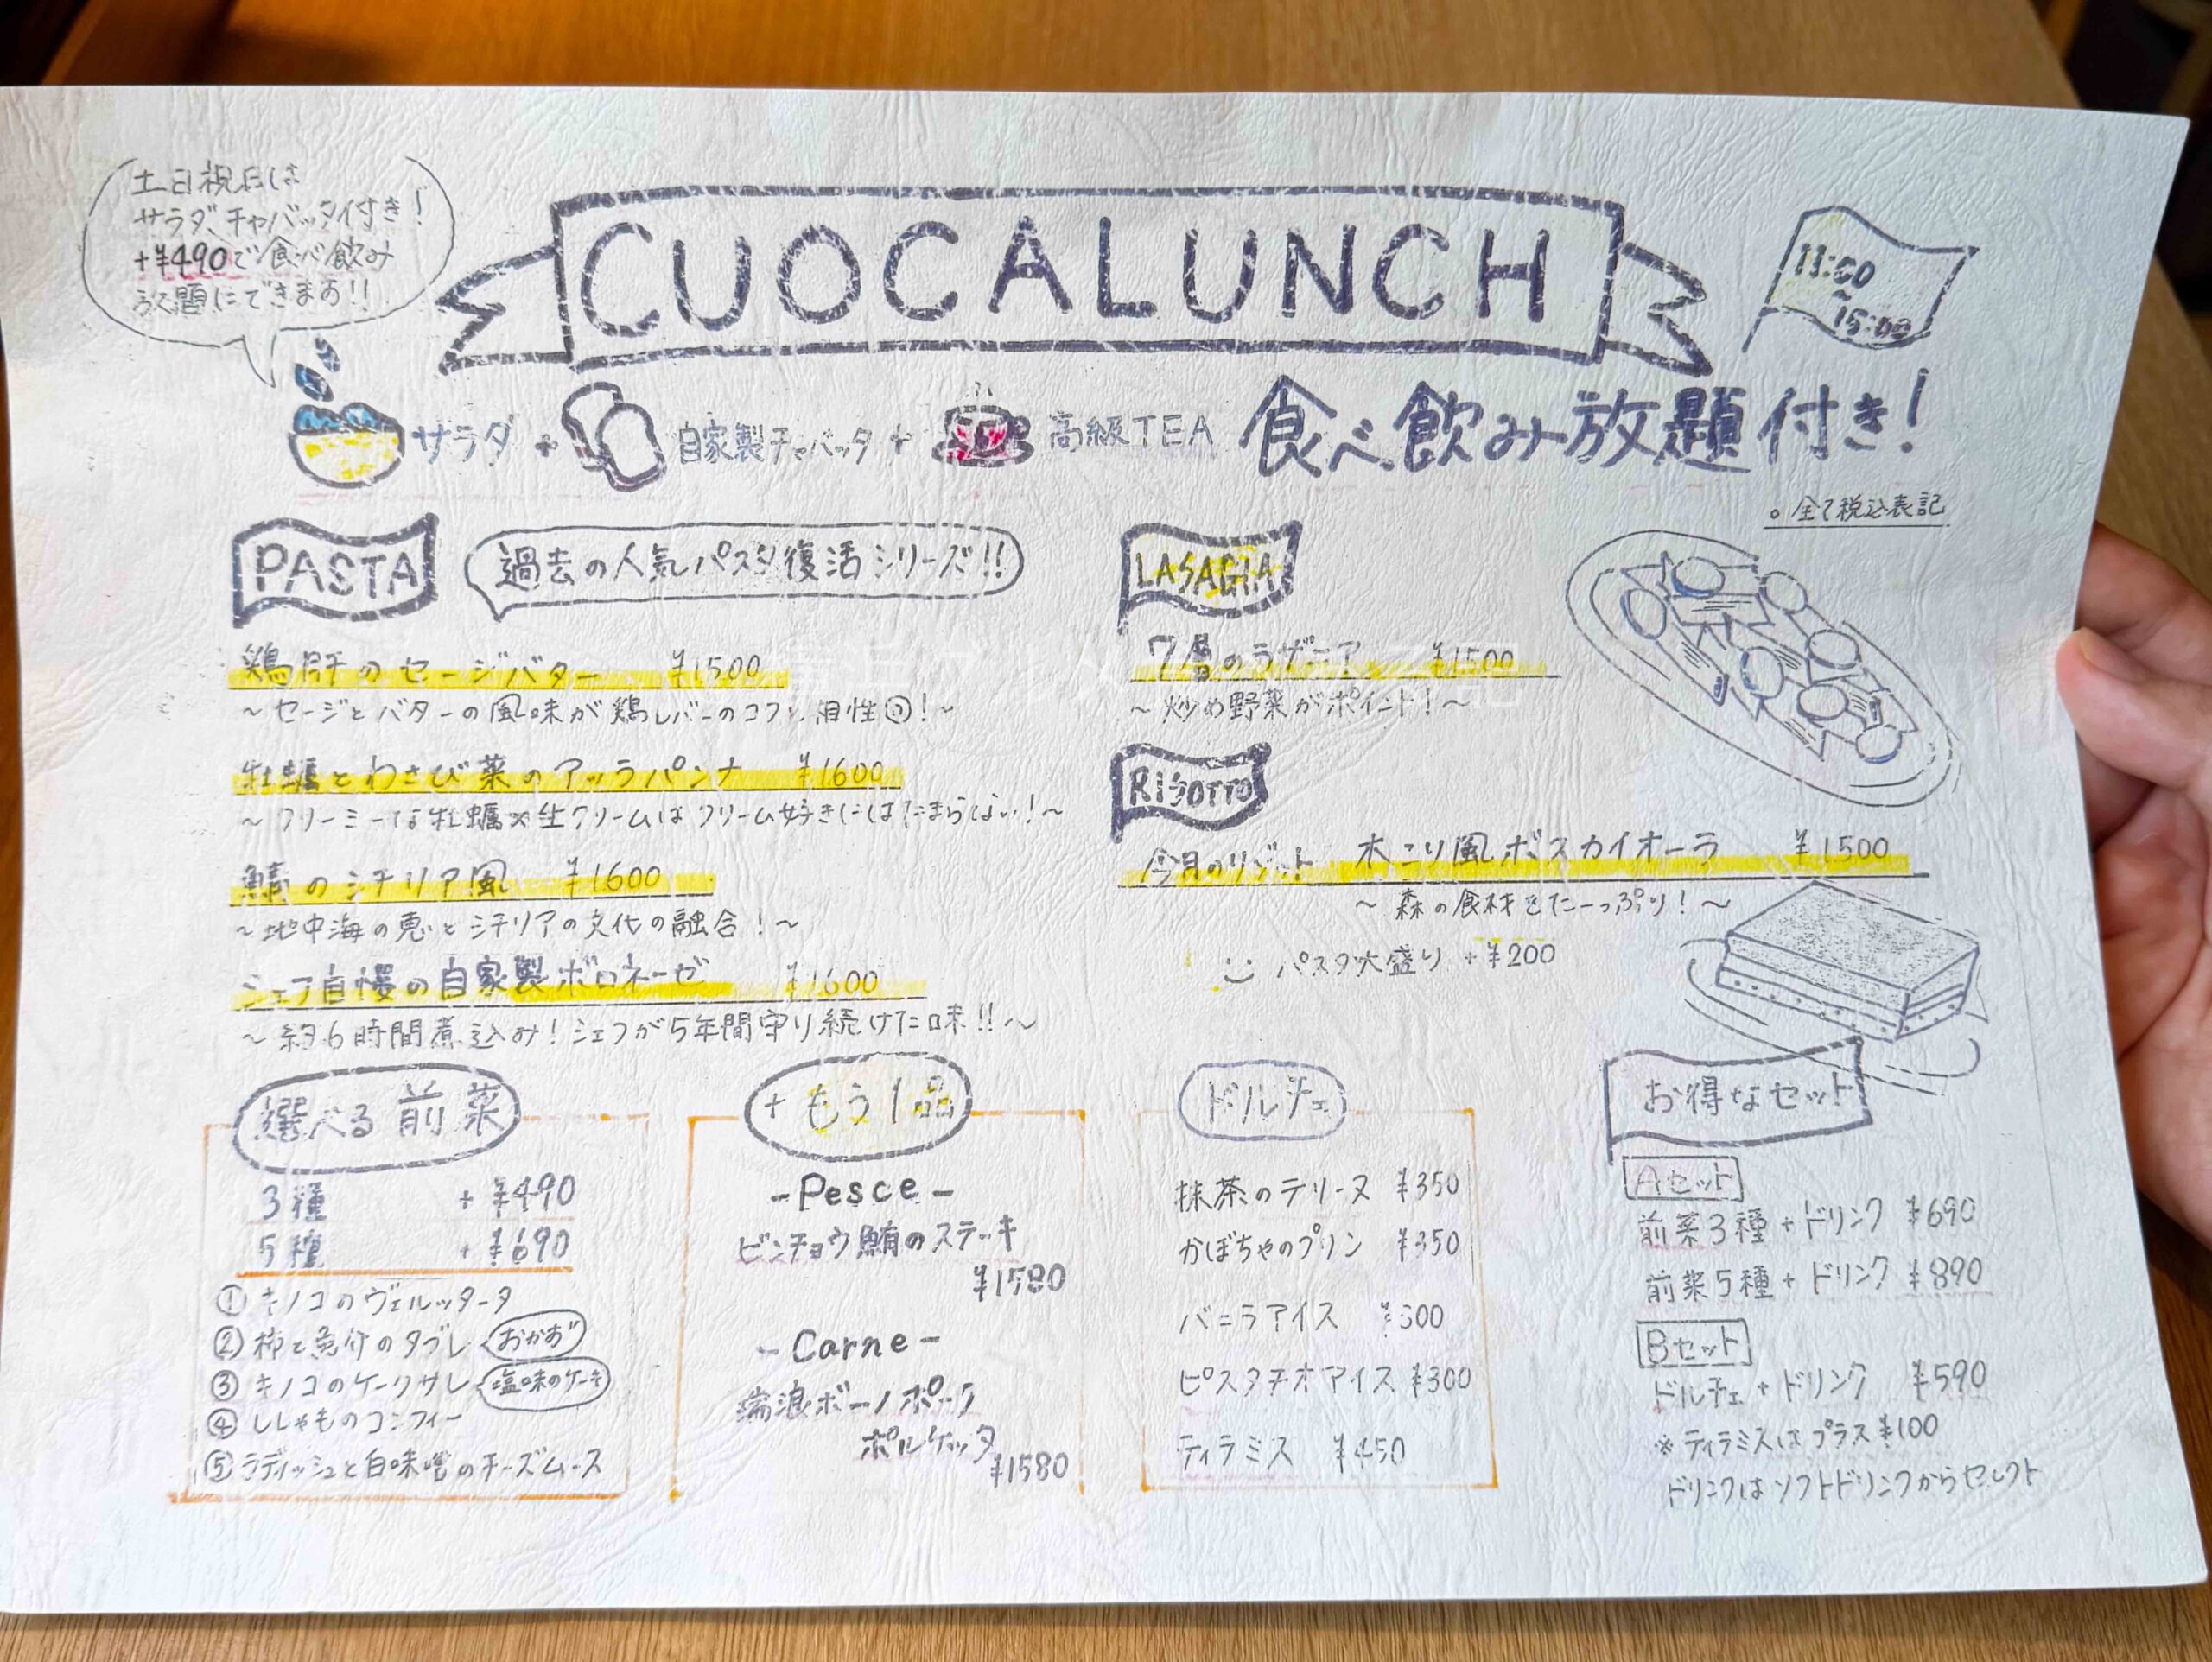 土日祝日は
サラダ、チャバッタ付き!
+¥490で食べ飲み
放題にできます!!
CUOCALUNCH
11:00
~
15:00
サラダ + 自家製チャバッタ + 高級TEA 食べ飲み放題付き!
。全て税込表記
PASTA
過去の人気パスタ復活シリーズ!!
鶏肝のセージバター ¥1500
~セージとバターの風味が鶏レバーのコクと相性◎!~
牡蠣とわさび菜のアッラパンナ ¥1600
~クリーミーな牡蠣×生クリームはクリーム好きにはたまらない!~
鯖のシチリア風 ¥1600
~地中海の恵とシチリアの文化の融合!~
シェフ自慢の自家製ボロネーゼ ¥1600
~約6時間煮込み!シェフが5年間守り続けた味!!~
LASAGIA
7層のラザニア ¥1500
~炒め野菜がポイント!~
RISOTTO
今月のリゾット 木こり風ボスカイオーラ ¥1500
~森の食材をたーっぷり!~
パスタ大盛り +¥200
選べる前菜
3種 +¥490
5種 +¥690
①キノコのヴェルッタータ
②柿と魚介のタブレ おかず
③キノコのケークサレ 塩味のケーキ
④ししゃものコンフィー
⑤ラディッシュと白味噌のチーズムース
+もう1品
-Pesce-
ビンチョウ鮪のステーキ
¥1580
-Carne-
瑞浪ボーノポーク
ポルケッタ
¥1580
ドルチェ
抹茶のテリーヌ ¥350
かぼちゃのプリン ¥350
バニラアイス ¥300
ピスタチオアイス ¥300
ティラミス ¥450
お得なセット
Aセット
前菜3種+ドリンク ¥690
前菜5種+ドリンク ¥890
Bセット
ドルチェ+ドリンク ¥590
※ティラミスはプラス¥100
ドリンクはソフトドリンクからセレクト